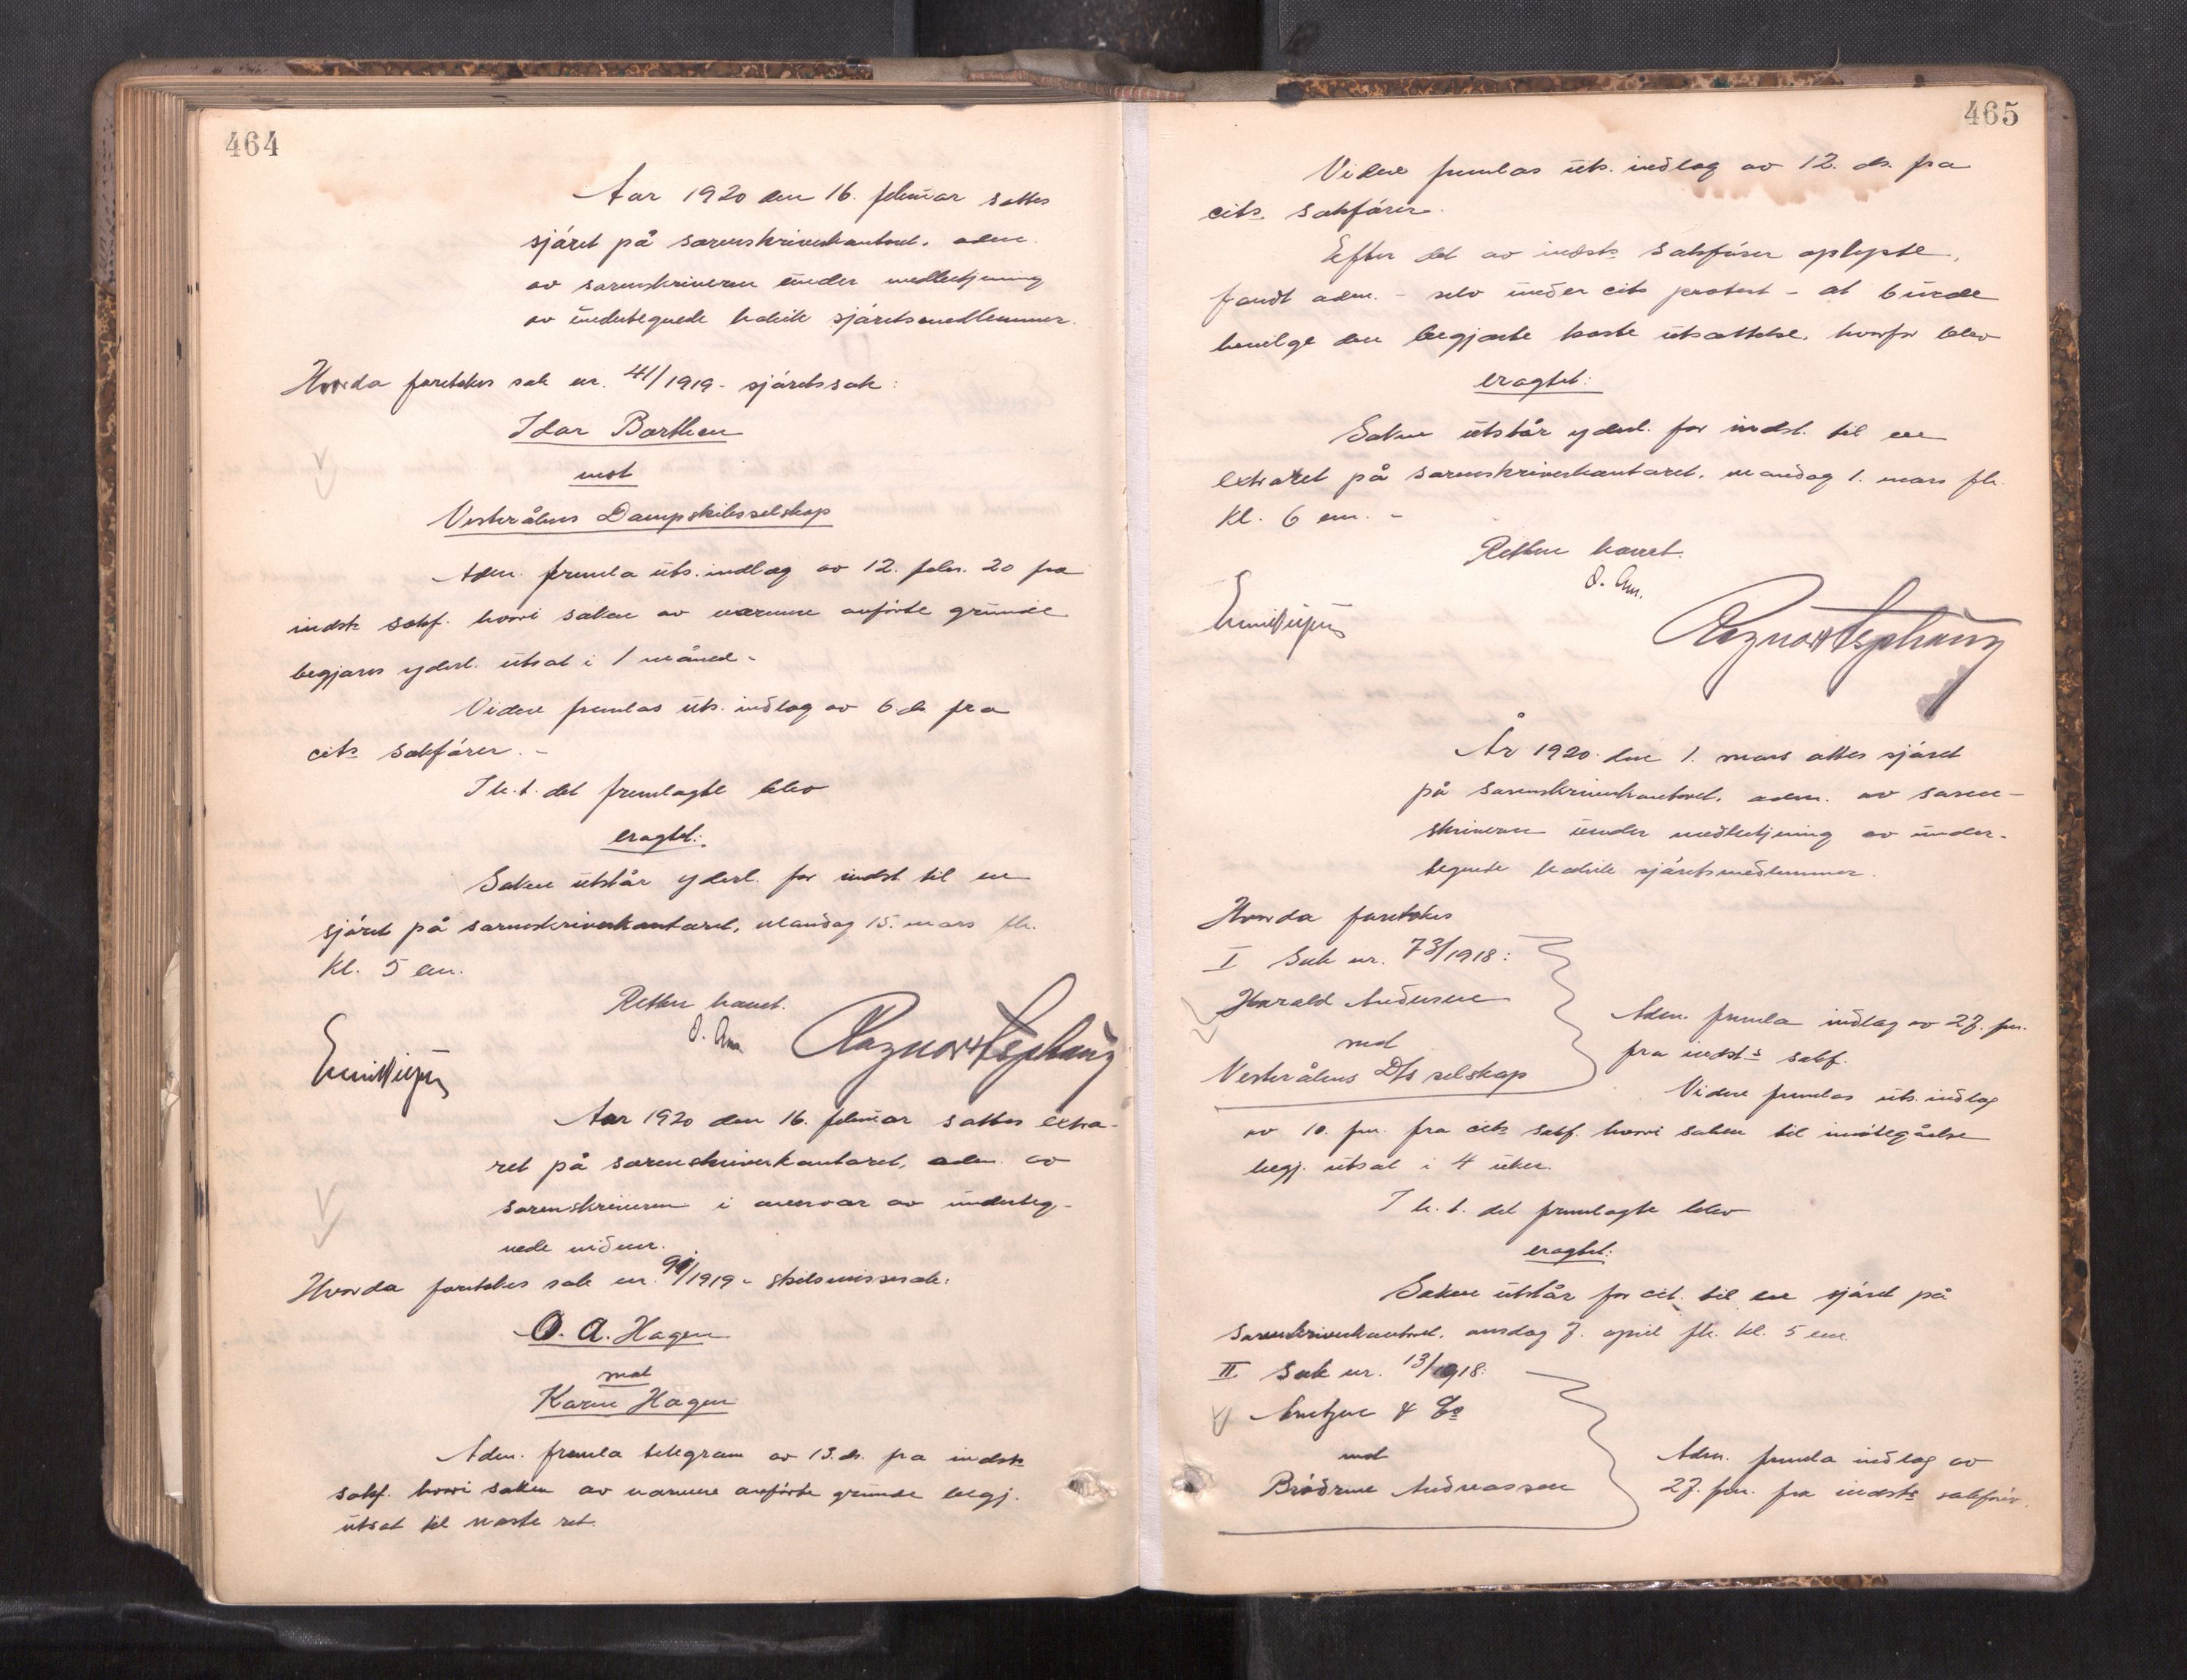 464
Aar 1920 den 16. februar sattes
sjøret på sorenskriverkontoret, adm.
av sorenskriveren under medbetjening
av undertegnede kaldte sjøretsmedlemmer.
Hvorda foretokes sak nr. 41/1919 - sjøretssak:
Idar Barthen
mot
Vesterålens Dampskibsselskap
Adm. fremla uts. indlæg av 12. febr. 20 fra
indsts sakf. hvori saken av nærmere anførte grunde
begjæres yderl. utsat i 1 måned -
Videre fremlas uts. indlæg av 6. ds. fra
cits sakfører. -
I h. t. det fremlagte blev
eragtet:
Saken utstår yderl. for indst. til en
sjøret på sorenskriverkontoret, mandag 15. mars fk.
Kl. 5 em.
Retten hævet.
Aar 1920 den 16. februar sattes extra-
ret på sorenskriverkontoret, adm. av
sorenskriveren i overvær av underteg-
nede vidner.
Hvorda foretokes sak nr. 91/1919 - skilsmissesak:
O. A. Hagen
mot
Karen Hagen
Adm. fremla telegram av 13. ds. fra indsts
sakf. hvori saken av nærmere anførte grunde begj.
utsat til næste ret.
465
Videre fremlas uts. indlæg av 12. ds. fra
cits sakfører.
Efter det av indsts sakfører oplyste,
fandt adm. - selv under cits protest - at burde
bevilge den begjærte korte utsættelse, hvorfor blev
eragtet:
Saken utstår yderl. for indst. til en
extraret på sorenskriverkontoret, mandag 1. mars fk.
Kl. 6 em. -
Retten hævet.
År 1920 den 1. mars attes sjøret
på sorenskriverkontoret, adm. av soren-
skriveren under medbetjening av under-
tegnede kaldte sjøretsmedlemmer.
Hvorda foretokes
I Sak nr. 73/1918:
Harald Andersen
mot
Vesterålens D/s selskap
Adm. fremla indlæg av 27. fm.
fra indsts sakf.
Videre fremlas uts. indlæg
av 10. fm. fra cits sakf. hvori saken til imøtegåelse
begj. utsat i 4 uker.
I h. t. det fremlagte blev
eragtet:
Saken utstår for cit. til en sjøret på
sorenskriverkontoret, onsdag 7. april fk. kl. 5 em.
II Sak nr. 13/1918:
Arntzen & Co
mot
Brødrene Andreassen
Adm. fremla indlæg av
27. fm. fra indsts sakfører.